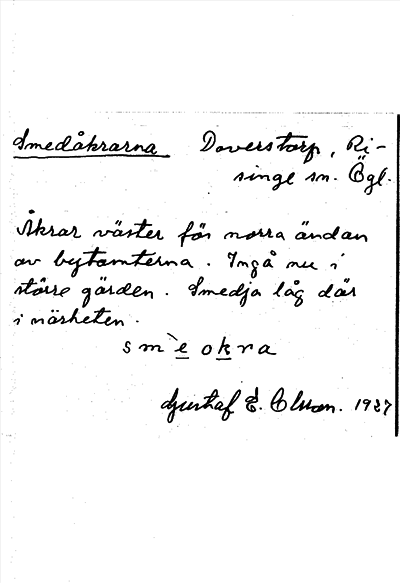 Smedåkrarna Doverstorp, Ri-
singe sn. Ögl.
Åkrar väster för norra ändan
av bytomterna. Ingå nu i
större gärden. Smedja låg där
i närheten.
sm`e okra
Gustaf E. Olsson. 1937